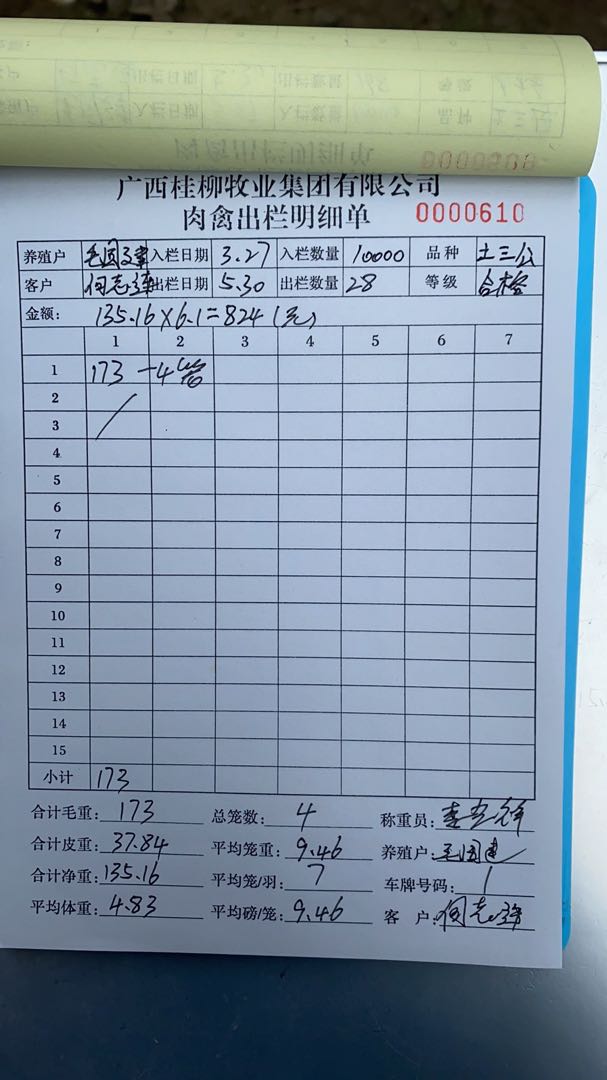 广西桂柳牧业集团有限公司
肉禽出栏明细单 0000610
养殖户 入栏日期 3.27 入栏数量 10000 品种 土三公
客户 何志强 出栏日期 5.30 出栏数量 28 等级 合格
金额: 135.16×6.1=824(元)
1 2 3 4 5 6 7
1 173 -4笼
2
3
4
5
6
7
8
9
10
11
12
13
14
15
小计 173
合计毛重: 173 总笼数: 4 称重员:
合计皮重: 37.84 平均笼重: 9.46 养殖户:
合计净重: 135.16 平均笼/羽: 7 车牌号码: /
平均体重: 4.83 平均磅/笼: 9.46 客 户: 何志强